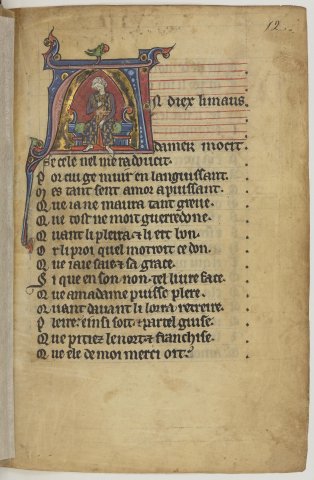 12.
si diex li maus
damer mocit
Se cele nel me radoucit.
Por cui ge muir en languissant.
Mes tant sent amor a puissant.
Que ia ne maura tant greue.
Que tost ne moit guerredone.
Quant li pleira et li ert bon.
Or li proi quel motroit ce don.
Que iaie saie et sa grace.
Si que en son non tel liure face.
Que a ma dame puisse plere.
Quant dauant li lorra retreire.
Pleire. einsi soit et par tel guise.
Que pitiez lenort et franchise.
Que ele de moi merci oit.